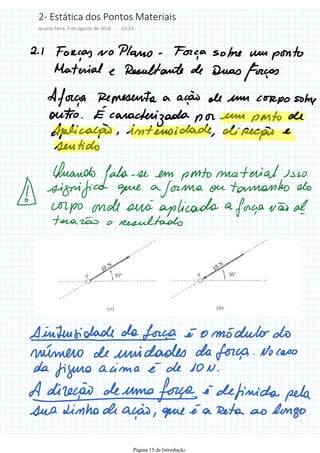 2- Estática dos Pontos Materiais
quarta-feira, 3 de agosto de 2016 22:53
2.1 Forças no Plano - Força sobre um ponto
Material e Resultante de Duas Forças
A força Representa a ação de um corpo sobre
outro. É caracterizada por um ponto de
Aplicação, intensidade, direção e
sentido
Quando fala-se em ponto material isso
significa que a forma ou tamanho do
corpo onde será aplicada a força não al
terarão o resultado
10 N 10 N
A 30° A 30°
(a) (b)
A intensidade da força é o módulo do
número de unidades da força. No caso
da figura acima é de 10 N.
A direção de uma força, é definida pela
sua Linha de ação, que é a Reta ao longo
Página 15 de Introdução